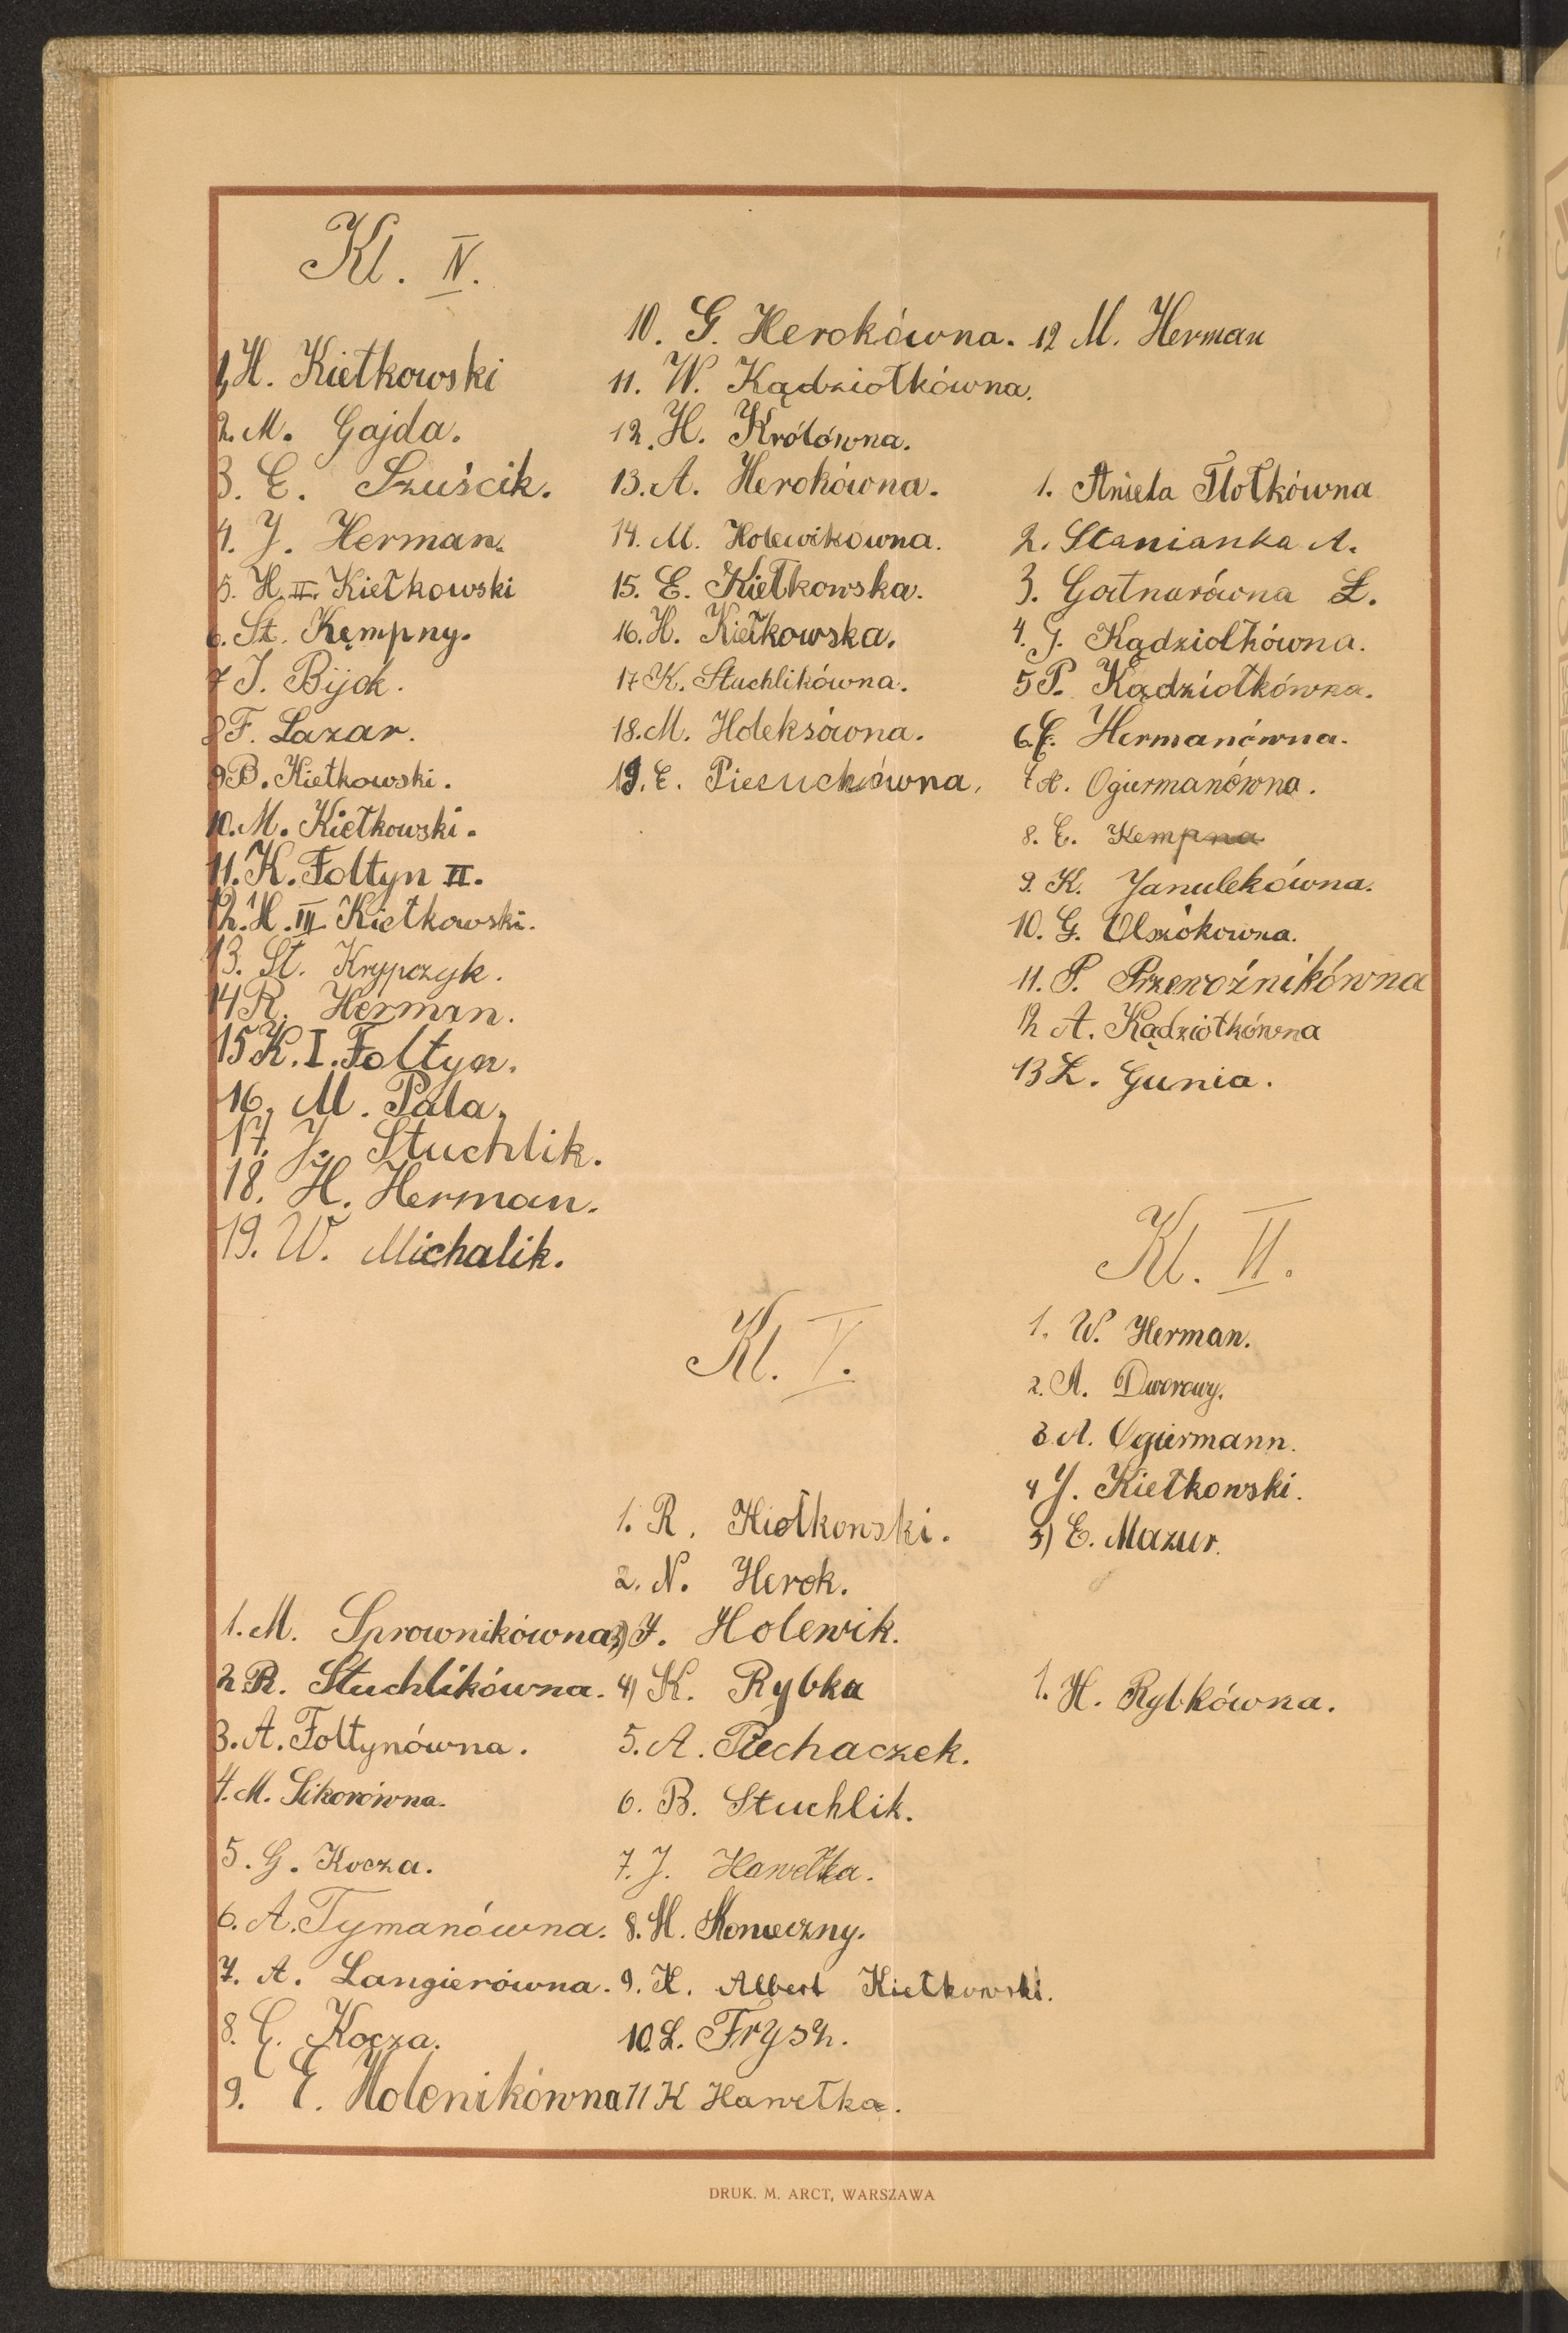 Kl. IV.
1, H. Kiełkowski
2. M. Gajda.
3. E. Szuścik.
4. J. Herman.
5. H. II. Kiełkowski
6. St. Kęmpny.
7 J. Bijok.
8 F. Lazar.
9 B. Kiełkowski.
10. M. Kiełkowski.
11. K. Foltyn II.
12. H. III Kiełkowski.
13. St. Krypczyk.
14 R. Herman.
15 K. I. Foltyn.
16. M. Pala.
17. J. Stuchlik.
18. H. Herman.
19. W. Michalik.
1. M. Sprownikówna
2 R. Stuchlikówna.
3. A. Foltynówna.
4. M. Sikorówna.
5. G. Kocza.
6. A. Tymanówna.
7. A. Langierówna.
8. G. Kocza.
9. E. Holenikówna
10. G. Herokówna.
11. W. Kądziołkówna.
12. H. Królówna.
13. A. Herokówna.
14. M. Holewikówna.
15. E. Kiełkowska.
16. H. Kiełkowska.
17 K. Stuchlikówna.
18. M. Holeksówna.
19. E. Piesuchówna.
Kl. V.
1. R. Kiełkowski.
2. N. Herok.
3) J. Holewik.
4) K. Rybka
5. A. Piechaczek.
6. B. Stuchlik.
7. J. Hawełka.
8. M. Konieczny.
9. K. Albert Kiełkowski.
10. L. Frysz.
11 K Hawełka.
12 M. Herman
1. Aniela Tlołkówna
2. Stanianka A.
3. Gatnarówna Ł.
4. J. Kądziołkówna.
5 P. Kądziołkówna.
6. E. Hermanówna.
7 A. Ogiermanówna.
8. E. Kempna
9. K. Janulekówna.
10. G. Olszokowna.
11. P. Przewoźnikówna
12 A. Kądziołkówna
13 Ł. Gunia.
Kl. VI.
1. W. Herman.
2. A. Dworowy.
3. A. Ogiermann.
4 J. Kiełkowski.
5) E. Mazur.
1. H. Rybkówna.
DRUK. M. ARCT, WARSZAWA